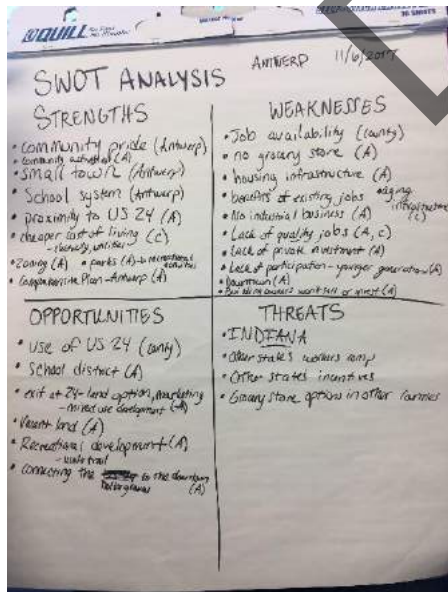 QUILL
ANTWERP 11/6/2017
SWOT ANALYSIS
STRENGTHS
• community pride (Antwerp)
• community activities (A)
• small town (Antwerp)
• School system (Antwerp)
• proximity to US 24 (A)
• cheaper cost of living (C)
• Zoning (A) • parks (A)
• Comprehensive Plan - Antwerp (A)
WEAKNESSES
• Job availability (county)
• no grocery store (A)
• housing infrastructure (A)
• benefits of existing jobs • aging infrastructure (C)
• No industrial business (A)
• Lack of quality jobs (A, C)
• Lack of private investment (A)
• Lack of participation - younger generation (A)
• Downtown (A)
• Building owners won't sell or invest (A)
OPPORTUNITIES
• Use of US 24 (county)
• School district (A)
• exit at 24 - land option, marketing
- mixed use development (A)
• Vacant land (A)
• Recreational development (A)
• Connecting the to the downtown (A)
THREATS
• INDIANA
• Other states workers comp
• Other states incentives
• Grocery store options in other counties